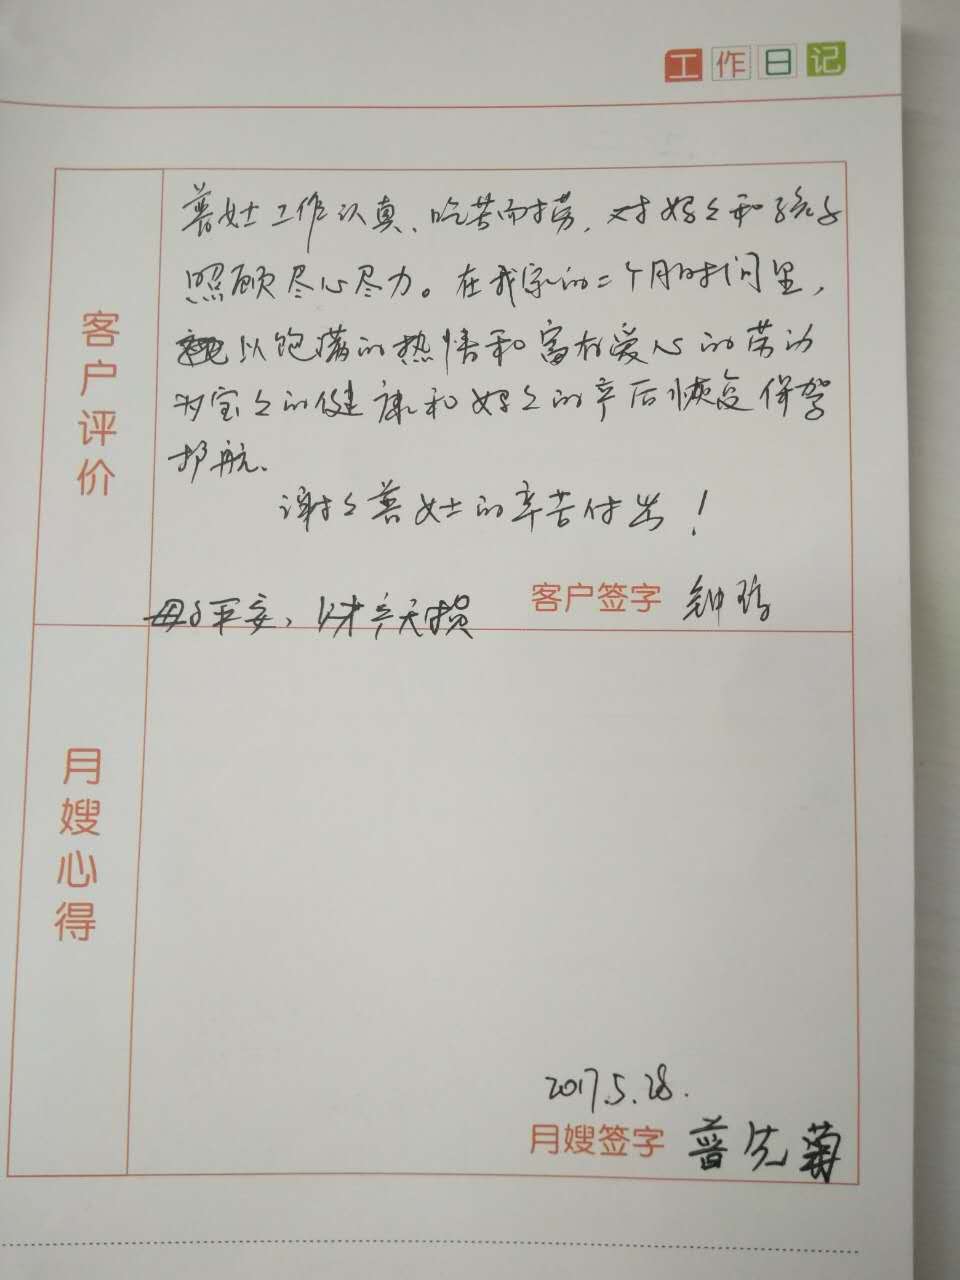 工作日记
客户评价
普女士工作认真、吃苦耐劳，对妈妈和孩子
照顾尽心尽力。在我家的二个月时间里，
她以饱满的热情和富有爱心的劳动
为宝宝的健康和妈妈的产后恢复保驾
护航。
谢谢普女士的辛苦付出！
客户签字 钟
母子平安，财产无损
月嫂心得
2017.5.28.
月嫂签字 普先菊